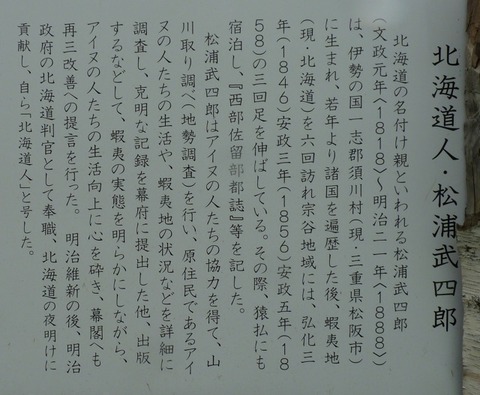 北海道人・松浦武四郎
北海道の名付け親といわれる松浦武四郎
(文政元年〈1818〉～明治二一年〈1888〉)
は、伊勢の国一志郡須川村(現・三重県松阪市)
に生まれ、若年より諸国を遍歴した後、蝦夷地
(現・北海道)を六回訪れ宗谷地域には、弘化三
年(1846)安政三年(1856)安政五年(18
58)の三回足を伸ばしている。その際、猿払にも
宿泊し、『西部佐留部都誌』等を記した。
松浦武四郎はアイヌの人たちの協力を得て、山
川取り調べ(地勢調査)を行い、原住民であるアイ
ヌの人たちの生活や、蝦夷地の状況などを詳細に
調査し、克明な記録を幕府に提出した他、出版
するなどして、蝦夷の実態を明らかにしながら、
アイヌの人たちの生活向上に心を砕き、幕閣へも
再三改善への提言を行った。 明治維新の後、明治
政府の北海道判官として奉職、北海道の夜明けに
貢献し、自ら「北海道人」と号した。